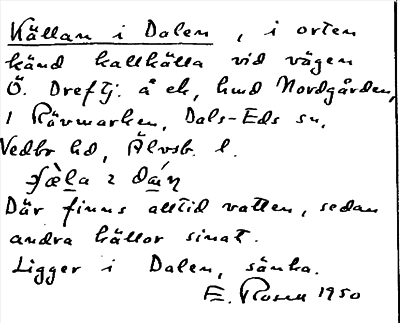 Källan i Dalen, i orten
känd kallkälla vid vägen
Ö. Dreftj. å ek, hmd Nordgården,
1 Rävmarken, Dals-Eds sn,
Vedbo hd, Älvsb. l.
i
Där finns alltid vatten, sedan
andra källor sinat.
Ligger i Dalen, sänka.
E. Rosen 1950